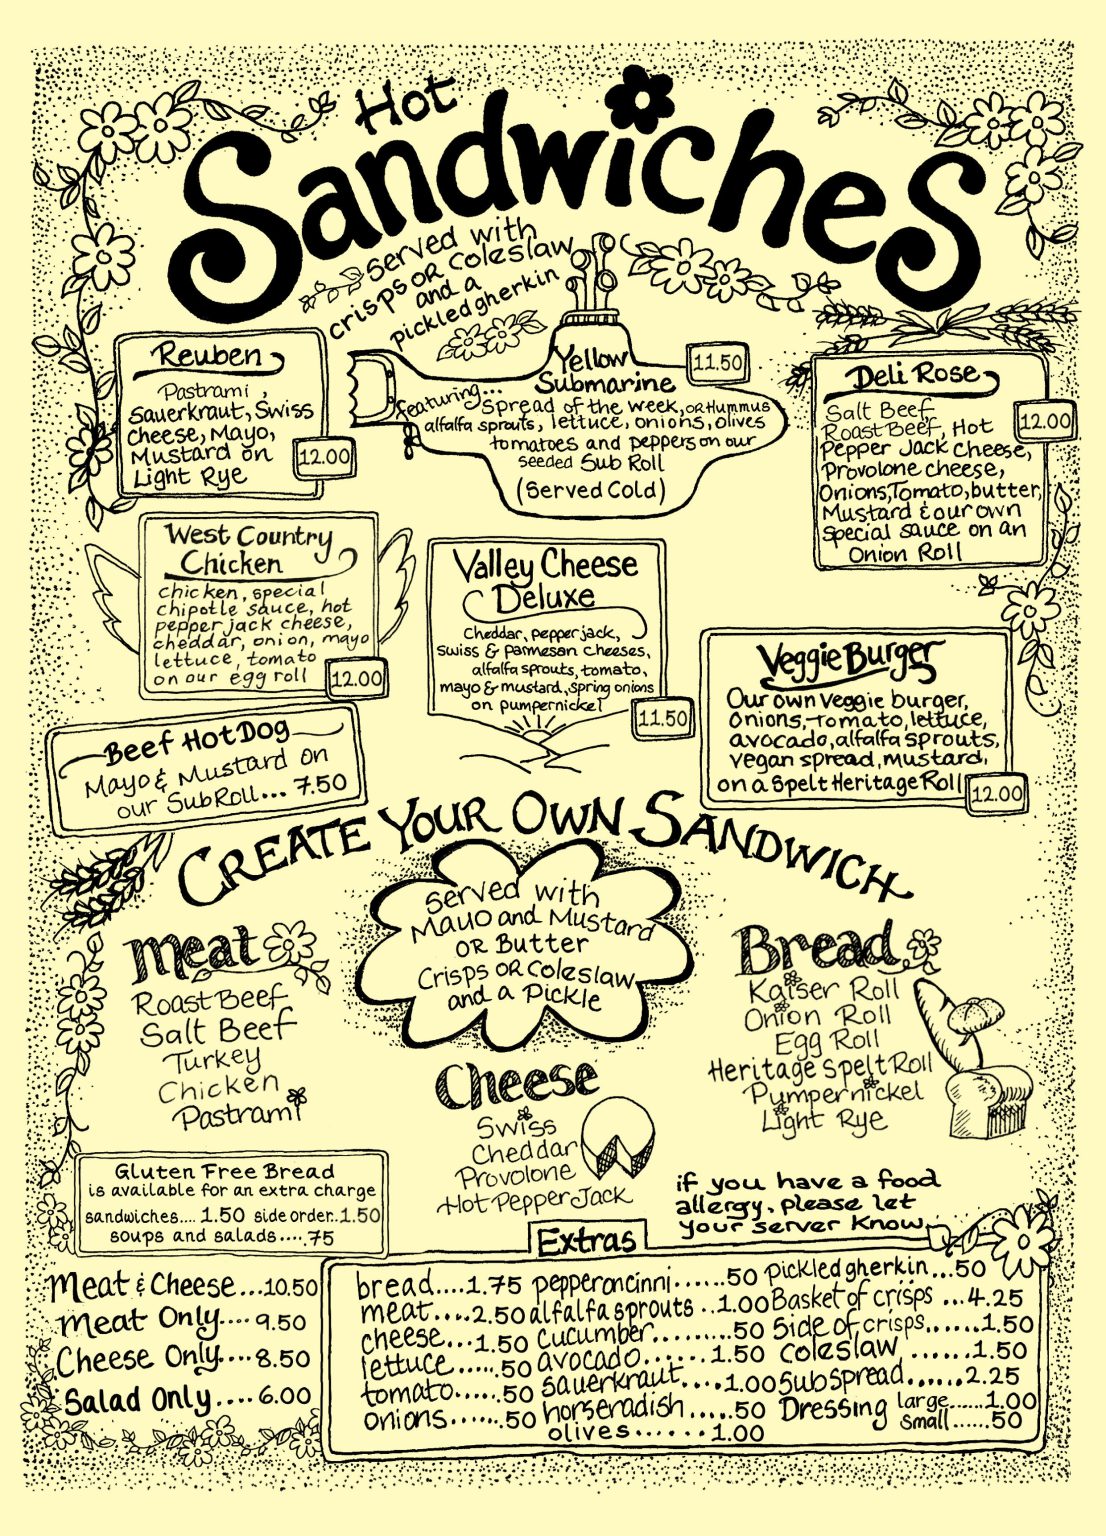 Hot
Sandwiches
Served with
crisps OR coleslaw
and a
pickled gherkin
Reuben
Pastrami,
Sauerkraut, Swiss
Cheese, Mayo,
Mustard on
Light Rye
12.00
Yellow
Submarine
11.50
featuring...
Spread of the week, OR Hummus
alfalfa sprouts, lettuce, onions, olives
tomatoes and peppers on our
seeded Sub Roll
(Served Cold)
Deli Rose
Salt Beef
Roast Beef, Hot
Pepper Jack Cheese,
Provolone cheese,
Onions, Tomato, butter,
Mustard & our own
Special sauce on an
Onion Roll
12.00
West Country
Chicken
chicken, special
chipotle sauce, hot
pepper jack cheese,
cheddar, onion, mayo
lettuce, tomato
on our egg roll
12.00
Valley Cheese
Deluxe
Cheddar, pepper jack,
Swiss & Parmesan cheeses,
alfalfa sprouts, tomato,
mayo & mustard, spring onions
on pumpernickel
11.50
Veggie Burger
Our own Veggie burger,
Onions, Tomato, lettuce,
avocado, alfalfa sprouts,
vegan spread, mustard,
on a Spelt Heritage Roll
12.00
Beef Hot Dog
Mayo & Mustard on
our Sub Roll... 7.50
CREATE YOUR OWN SANDWICH
Served with
Mayo and Mustard
OR Butter
Crisps OR Coleslaw
and a Pickle
Meat
Roast Beef
Salt Beef
Turkey
Chicken
Pastrami
Cheese
Swiss
Cheddar
Provolone
Hot Pepper Jack
Bread
Kaiser Roll
Onion Roll
Egg Roll
Heritage Spelt Roll
Pumpernickel
Light Rye
Gluten Free Bread
is available for an extra charge
sandwiches.... 1.50 side order..1.50
soups and salads.....75
if you have a food
allergy, please let
your server know.
Meat & Cheese...10.50
Meat Only.... 9.50
Cheese Only....8.50
Salad Only.... 6.00
Extras
bread....1.75
meat....2.50
cheese...1.50
lettuce......50
tomato......50
onions.......50
pepperoncinni......50
alfalfa sprouts ..1.00
cucumber.........50
avocado.......1.50
sauerkraut....1.00
horseradish.....50
olives......1.00
pickled gherkin...50
Basket of crisps ...4.25
Side of crisps......1.50
coleslaw ......1.50
Sub spread......2.25
Dressing large......1.00
small......50